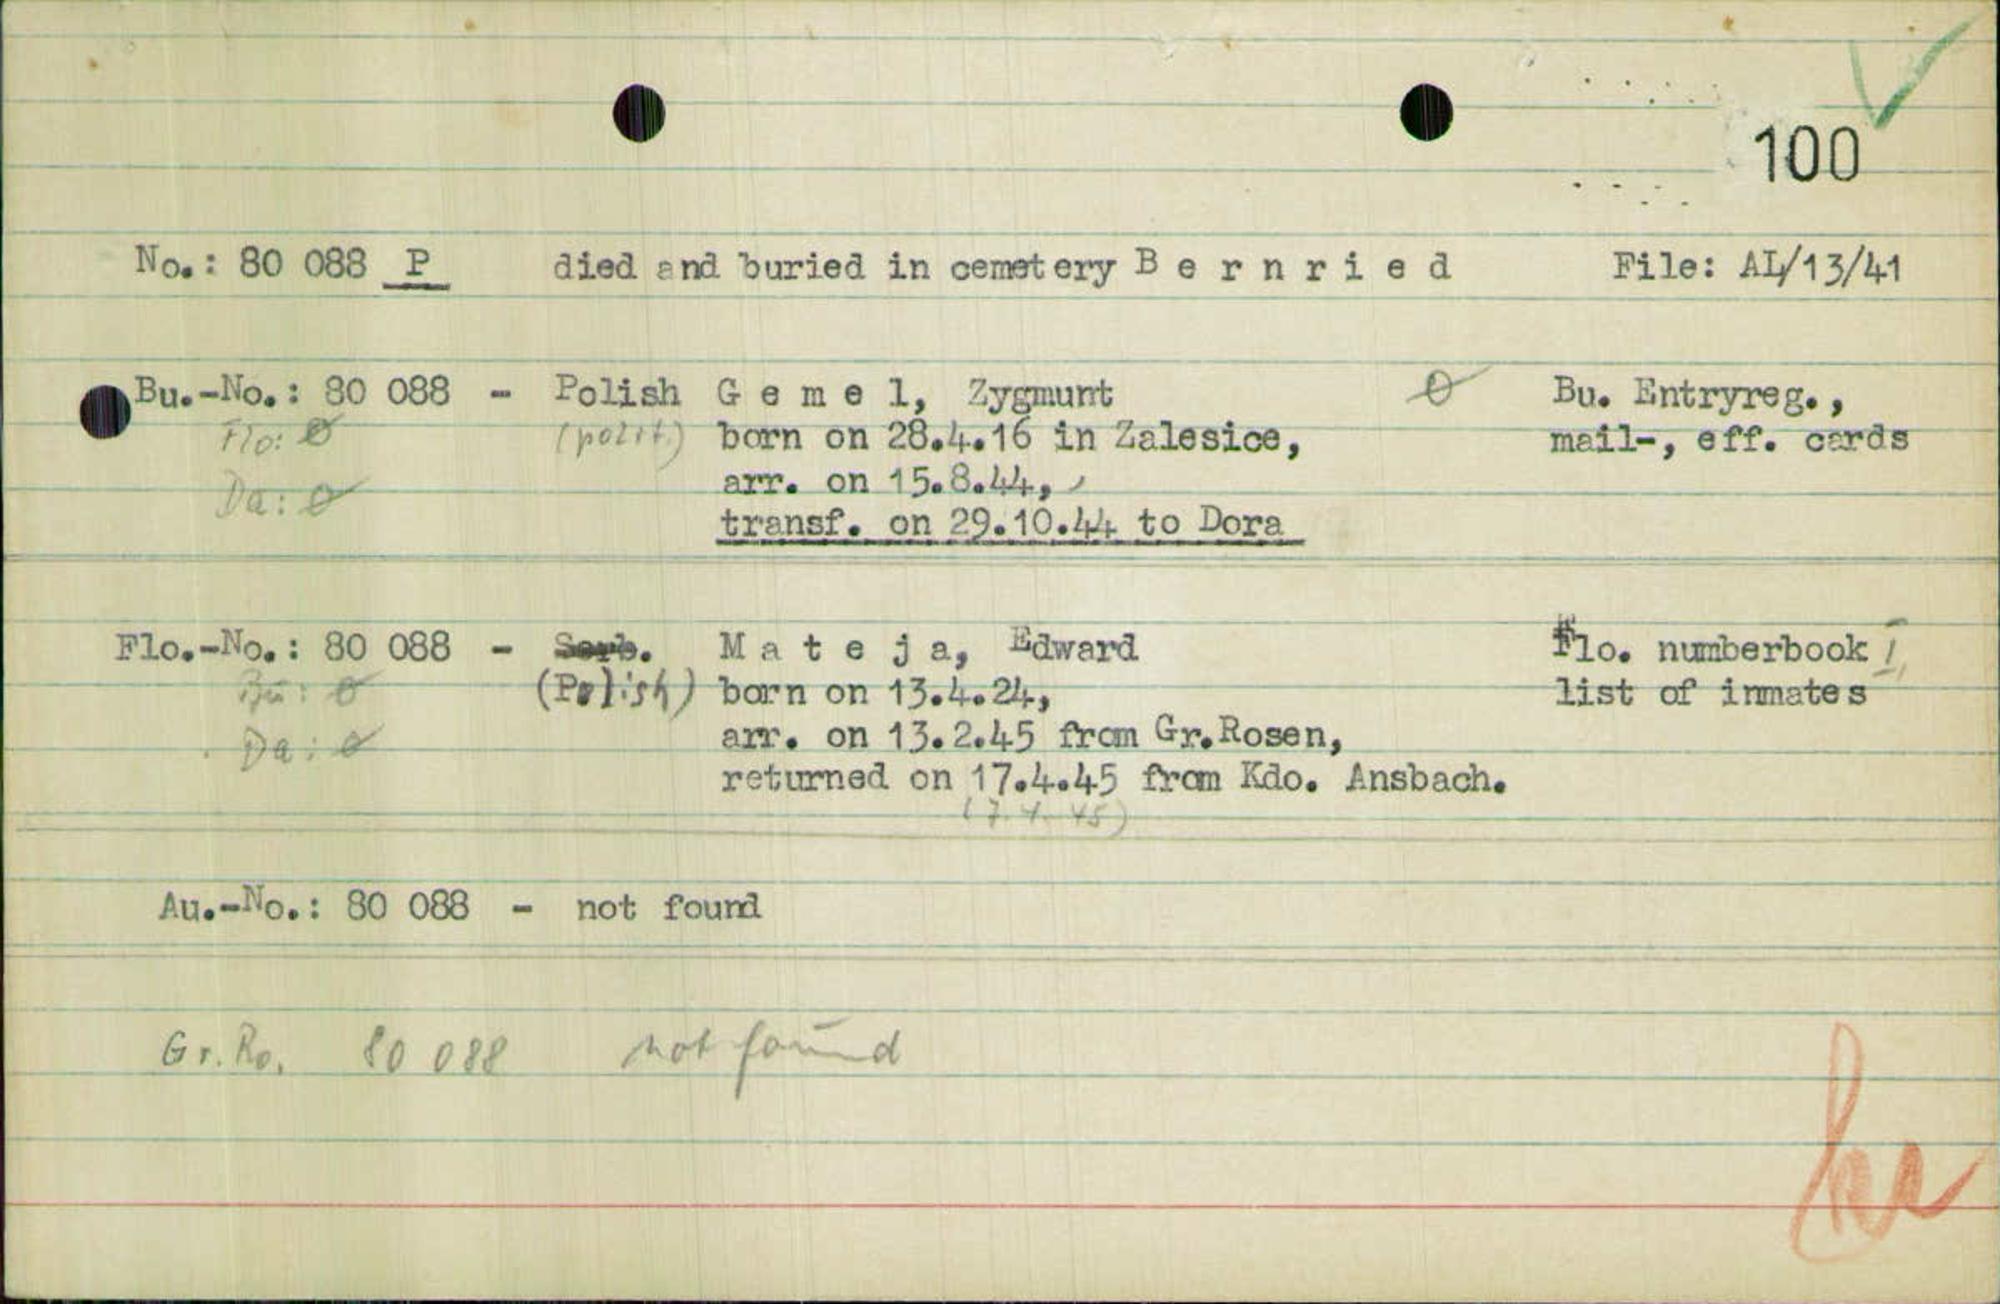 100
No.: 80 088 P died and buried in cemetery B e r n r i e d File: AL/13/41
Bu.-No.: 80 088 - Polish G e m e l, Zygmunt Ø Bu. Entryreg.,
Flo: Ø (polit.) born on 28.4.16 in Zalesice, mail-, eff. cards
Da: Ø arr. on 15.8.44,
transf. on 29.10.44 to Dora
Flo.-No.: 80 088 - Serb. M a t e j a, Edward Flo. numberbook I,
Bu: Ø (Polish) born on 13.4.24, list of inmates
Da: Ø arr. on 13.2.45 from Gr.Rosen,
returned on 17.4.45 from Kdo. Ansbach.
(7.4.45)
Au.-No.: 80 088 - not found
Gr. Ro. 80 088 not found